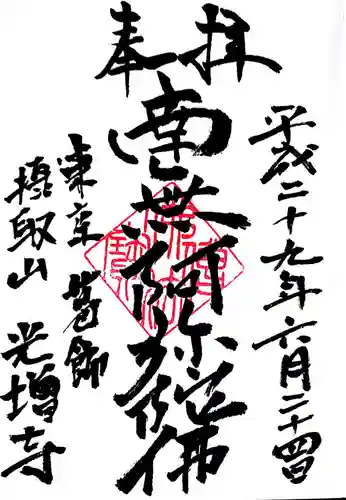 奉拝
平成二十九年六月二十四日
南無阿弥陀佛
東京葛飾
攝取山
光増寺